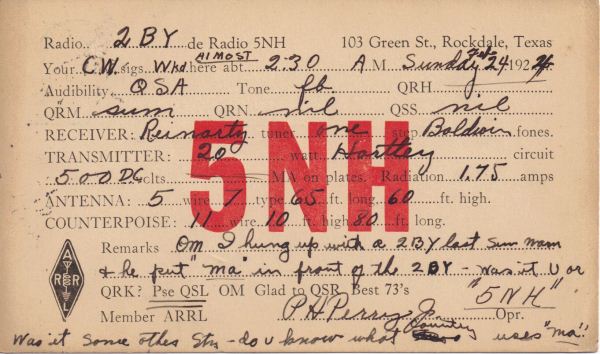 Radio 2BY de Radio 5NH 103 Green St., Rockdale, Texas
Your CW sigs Wkd ALMOST here abt 2:30 A M. Sunday Feb 24 1924
Audibility QSA Tone fb QRH
QRM sum QRN nil QSS nil
RECEIVER: Reinartz tuner one step Baldwin fones.
TRANSMITTER: 20 watt Hartley circuit
500 DC olts MA on plates. Radiation 1.75 amps
ANTENNA: 5 wire 7 type 65 ft. long 60 ft. high.
COUNTERPOISE: 11 wire 10 ft. high 80 ft. long.
5NH
Remarks OM I hung up with a 2BY last Sun morn
& he put "ma" in front of the 2BY - Was it U or
QRK? Pse QSL OM Glad to QSR Best 73's
"5NH"
Member ARRL P H Perry Jr. Opr.
Was it some other Stn - do u know what country uses "ma"
A R R L